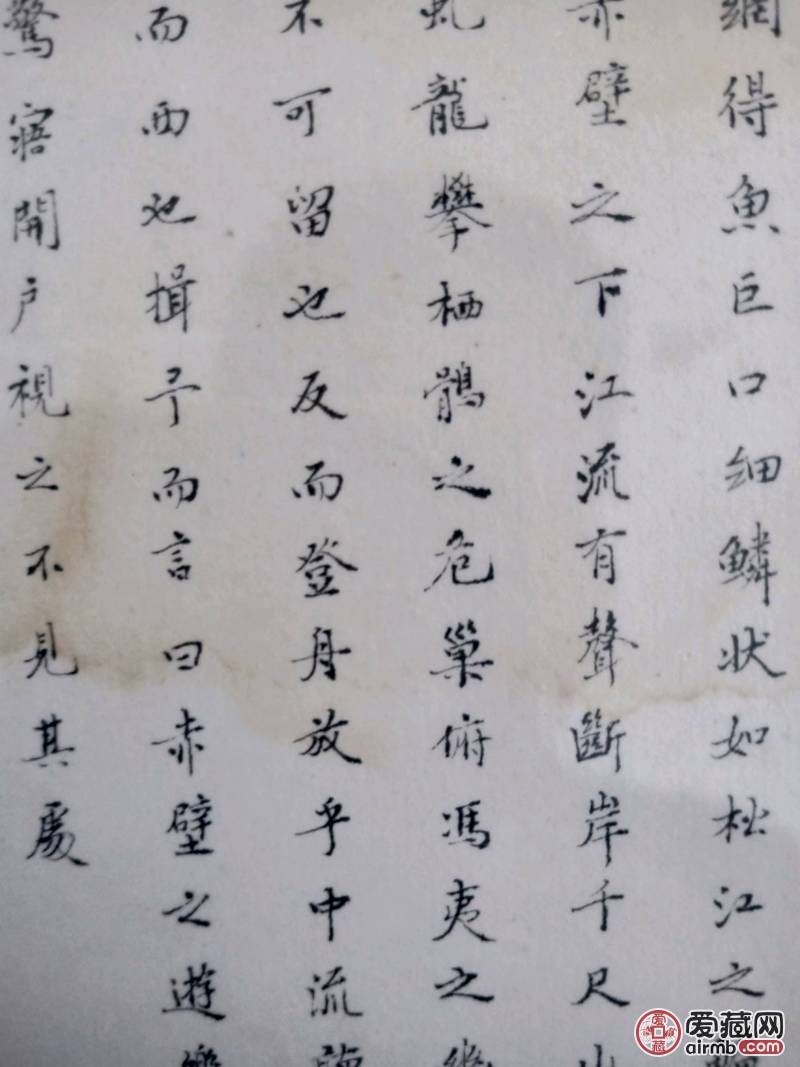 網得魚巨口細鱗狀如松江之鱸
赤壁之下江流有聲斷岸千尺山
虬龍攀栖鶻之危巢俯馮夷之幽
不可留也反而登舟放乎中流聽
而西也揖予而言曰赤壁之遊樂
驚寤開户視之不見其處
爱藏网
airmb.com